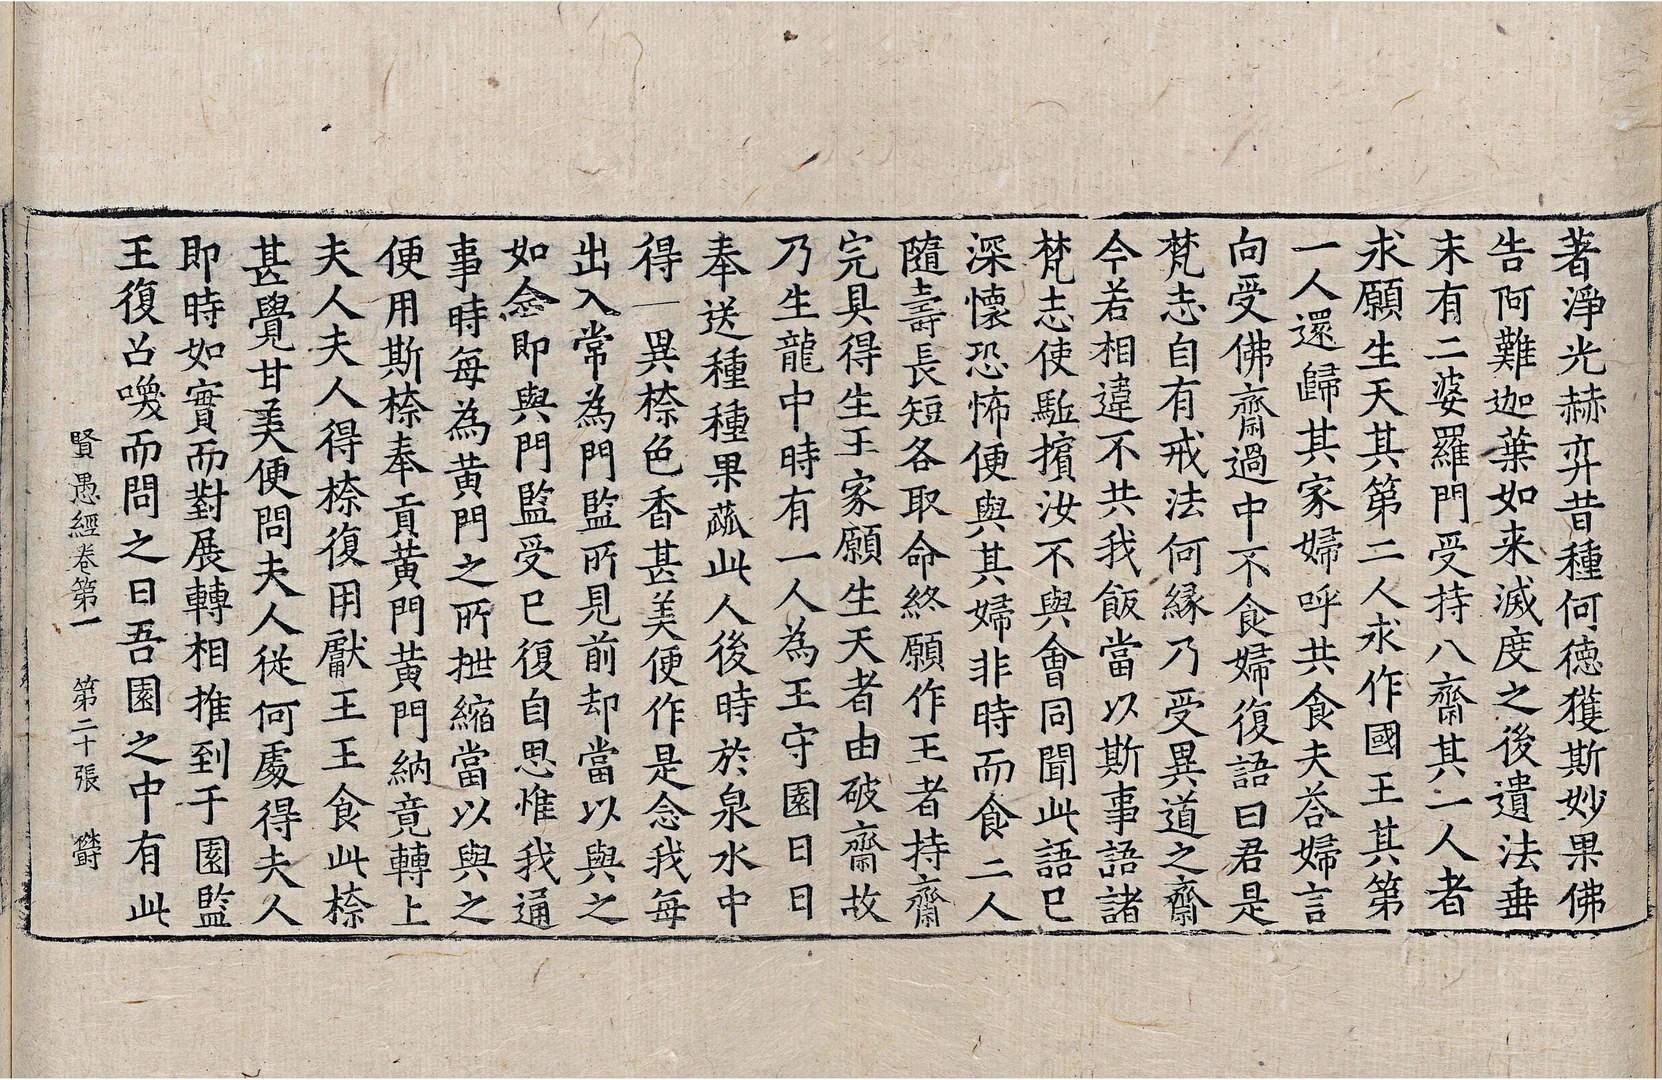 著淨光赫弈昔種何德獲斯妙果佛
告阿難迦葉如来滅度之後遺法垂
末有二婆羅門受持八齋其一人者
求願生天其第二人求作國王其第
一人還歸其家婦呼共食夫荅婦言
向受佛齋過中不食婦復語曰君是
梵志自有戒法何緣乃受異道之齋
今若相違不共我飯當以斯事語諸
梵志使駈擯汝不與會同聞此語已
深懷恐怖便與其婦非時而食二人
隨壽長短各取命終願作王者持齋
完具得生王家願生天者由破齋故
乃生龍中時有一人為王守園日日
奉送種種果蓏此人後時於泉水中
得一異㮈色香甚美便作是念我每
出入常為門監所見前却當以與之
如念即與門監受已復自思惟我通
事時每為黄門之所抴縮當以與之
便用斯㮈奉貢黄門黄門納竟轉上
夫人夫人得㮈復用獻王王食此㮈
甚覺甘美便問夫人従何處得夫人
即時如實而對展轉相推到于園監
王復召喚而問之曰吾園之中有此
賢愚經卷第一 第二十張